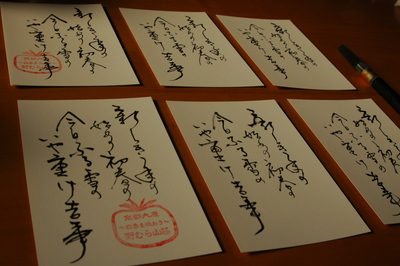 新しき年の
始の初春の
今日ふる雪の
いや重け吉事
京都大原
野むら山荘
新しき年の
始の初春の
今日ふる雪の
いや重け吉事
新しき年の
始の初春の
今日ふる雪の
いや重け吉事
新しき年の
始の初春の
今日ふる雪の
いや重け吉事
京都大原
野むら山荘
新しき年の
始の初春の
今日ふる雪の
いや重け吉事
新しき年の
始の初春の
今日ふる雪の
いや重け吉事